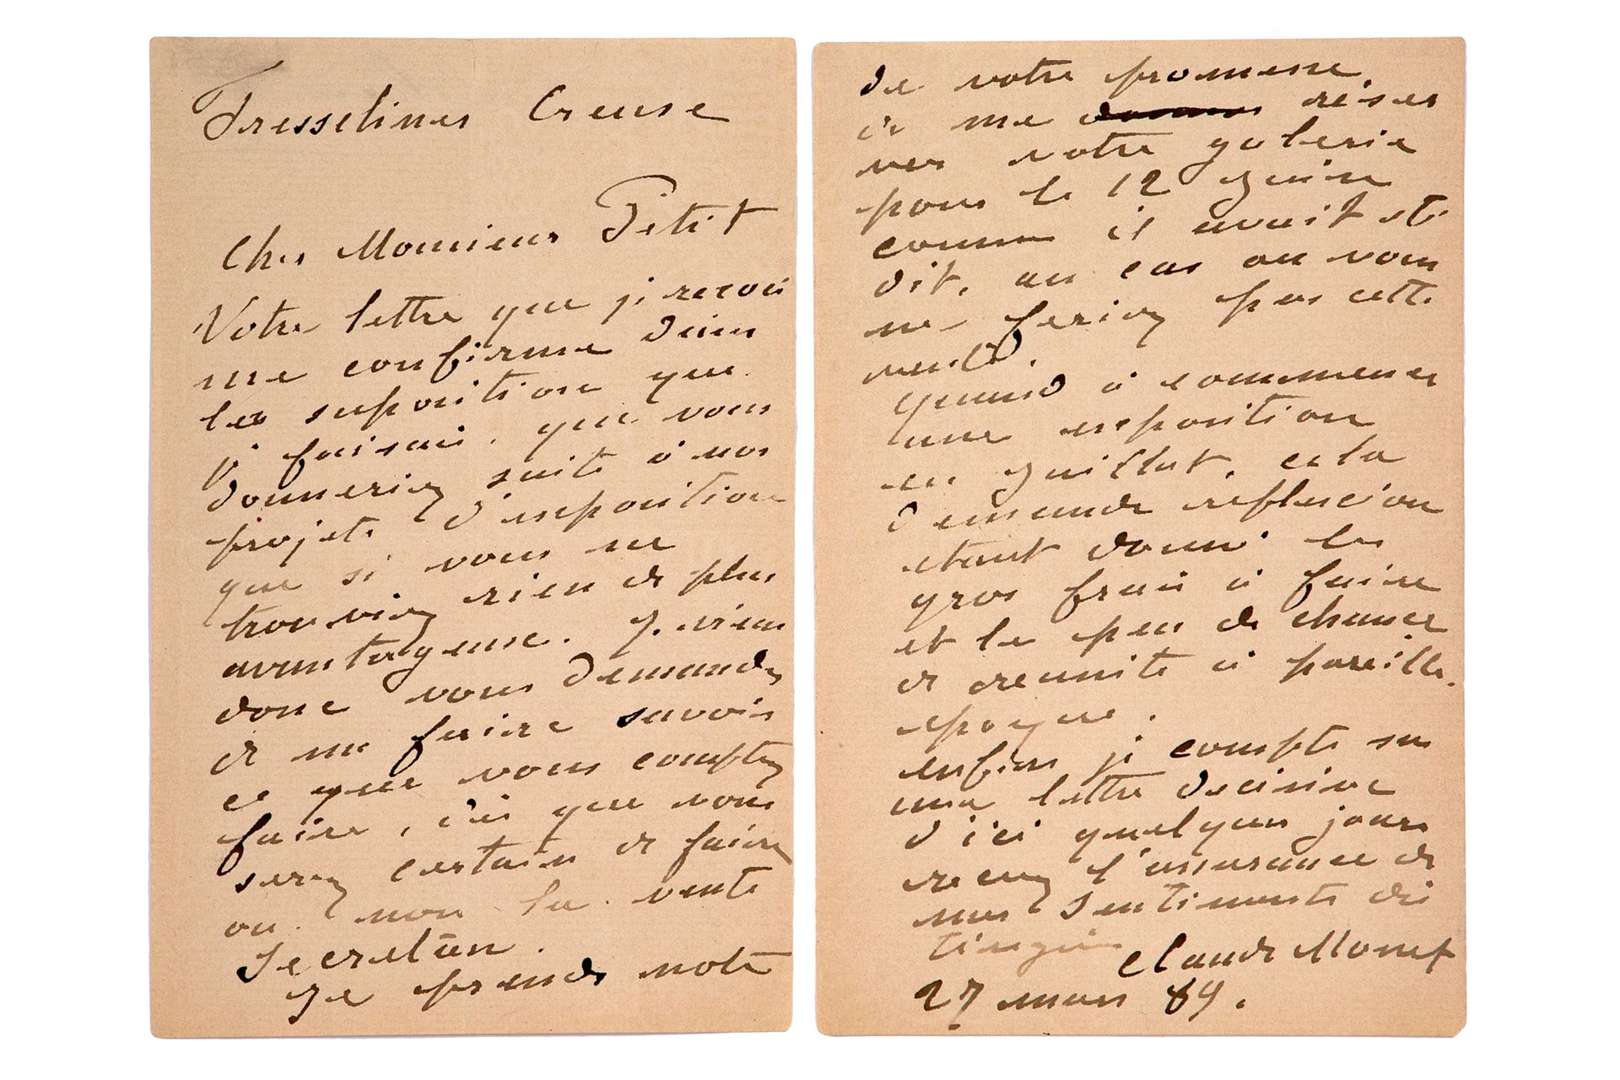 Fresselines Creuse
Cher Monsieur Petit
Votre lettre que je recois
me confirme dans
les suposition que
je faisais. que vous
donneriez suite à nos
projets d'exposition
que si vous ne
trouviez rien de plus
avantageuse. Je viens
donc vous demander
de me faire savoir
ce que vous comptez
faire, dès que vous
serez certain de faire
ou non la vente
Secretan.
Je prends note
de votre promesse,
de me reser
ver votre galerie
pour le 12 Juin
comme il avait eté
dit, au cas ou vous
ne feriez pas cette
vente.
Quand à commencer
une exposition
en Juillet, cela
demande reflexion
etant donné les
gros frais à faire
et le peu de chance
de reussite à pareille
epoque.
enfin je compte sur
une lettre decisive
d'ici quelques jours
recevez l'assurance de
mes sentiments dis
tingués
Claude Monet
27 mars 89.